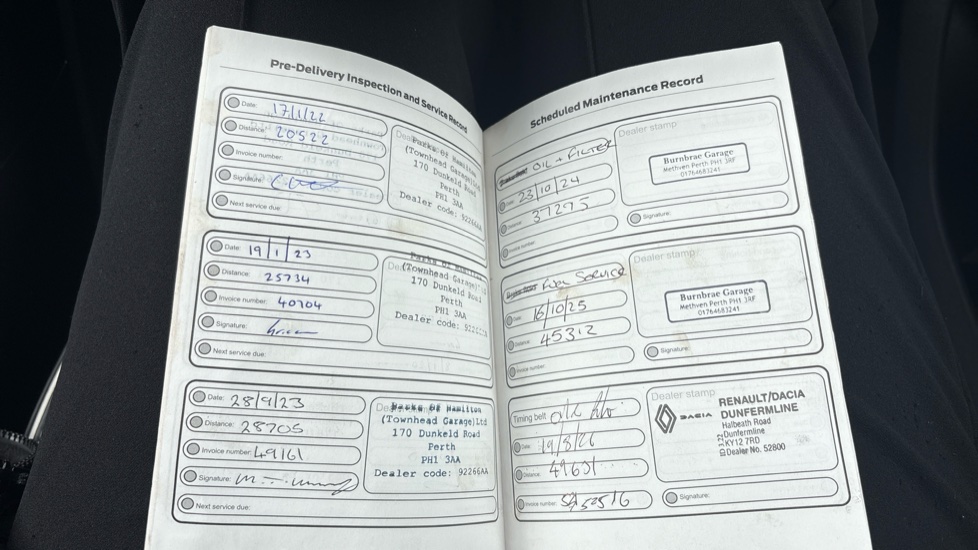 Pre-Delivery Inspection and Service Record
Date: 17/1/22
Distance: 20522
Invoice number:
Signature:
Next service due:
Parks of Hamilton
(Townhead Garage)Ltd
170 Dunkeld Road
Perth
PH1 3AA
Dealer code: 92266AA
Date: 19/1/23
Distance: 25734
Invoice number: 40704
Signature:
Next service due:
Parks of Hamilton
(Townhead Garage)Ltd
170 Dunkeld Road
Perth
PH1 3AA
Dealer code:
Date: 28/9/23
Distance: 28705
Invoice number: 49161
Signature:
Next service due:
Parks of Hamilton
(Townhead Garage)Ltd
170 Dunkeld Road
Perth
PH1 3AA
Dealer code: 92266AA
Scheduled Maintenance Record
OIL + FILTER
Date: 23/10/24
Distance: 37275
Invoice number:
Dealer stamp:
Burnbrae Garage
Methven Perth PH1 3RF
01764683241
Signature:
Full SERVICE
Date: 16/10/25
Distance: 45312
Invoice number:
Dealer stamp:
Burnbrae Garage
Methven Perth PH1 3RF
01764683241
Signature:
Timing belt
Date:
Distance:
Invoice number:
Dealer stamp:
DACIA
RENAULT/DACIA
DUNFERMLINE
Halbeath Road
Dunfermline
KY12 7RD
Dealer No. 52800
Signature: